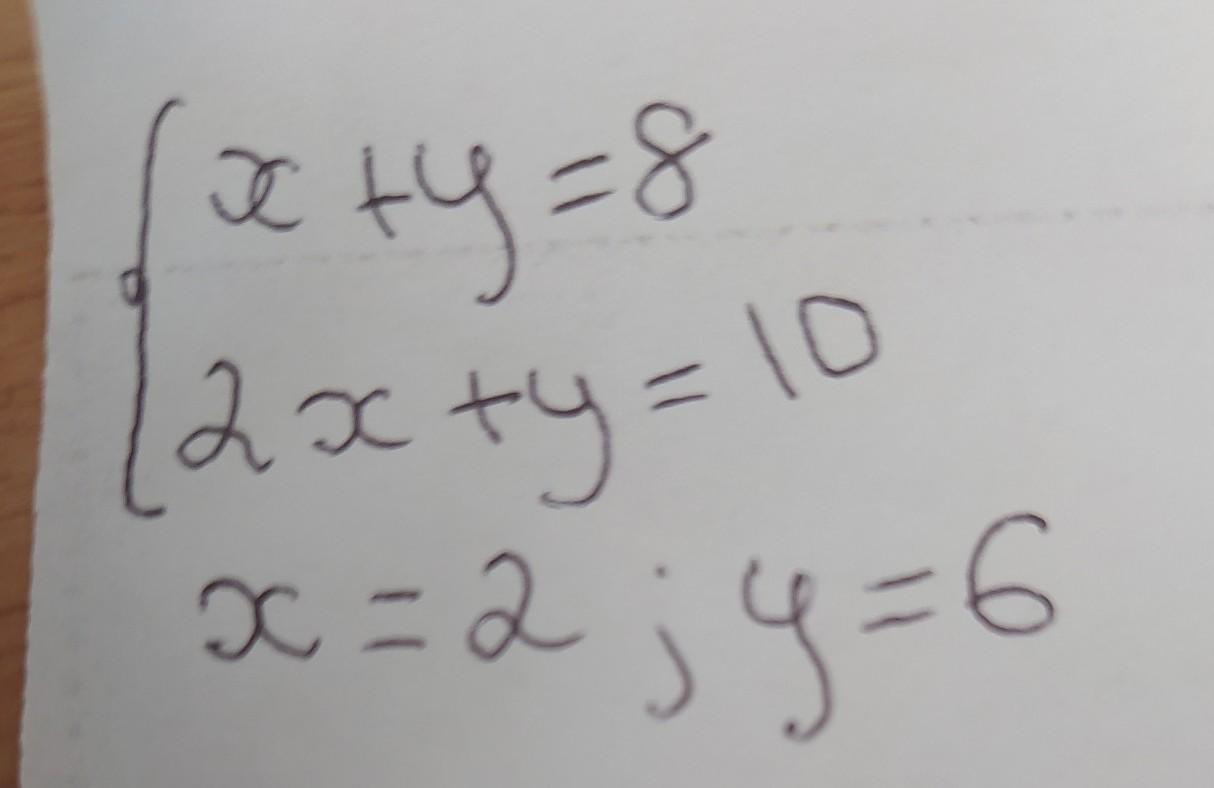 x + y = 8
2x + y = 10
x = 2 ; y = 6